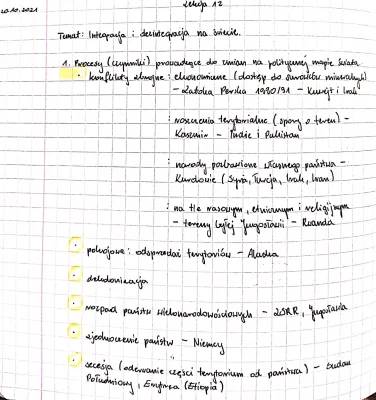 20.10.2021
Lekcja 12
Temat: Integracja i dezintegracja na świecie.
1. Procesy (czynniki) prowadzące do zmian na politycznej mapie świata
• konflikty zbrojne: ekonomiczne (dostęp do surowców mineralnych)
– Zatoka Perska 1990/91 – Kuwejt i Irak
: roszczenia terytorialne (spory o teren) –
Kaszmir – Indie i Pakistan
: narody pozbawione własnego państwa –
Kurdowie (Syria, Turcja, Irak, Iran)
: na tle rasowym, etnicznym i religijnym
– tereny byłej Jugosławii – Ruanda
• pokojowe: odsprzedaż terytoriów – Alaska
• dekolonizacja
• rozpad państw wielonarodowościowych – ZSRR, Jugosławia
• zjednoczenie państw – Niemcy
• secesja (oderwanie części terytorium od państwa) – Sudan
Południowy, Erytrea (Etiopia)